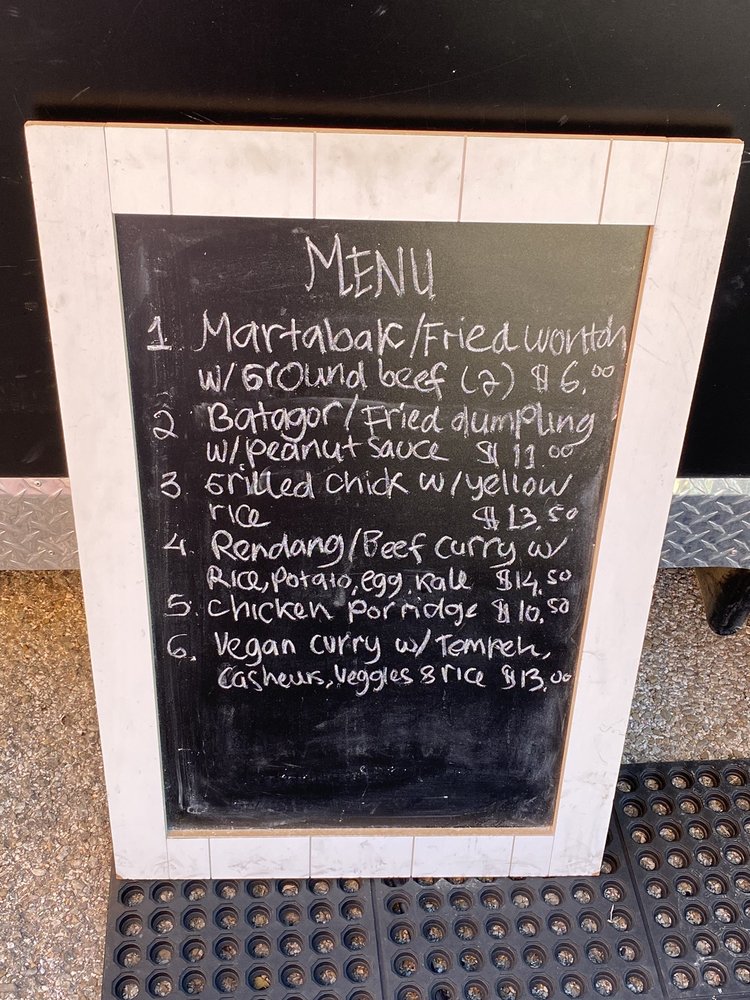 MENU
1 Martabak/Fried wontton
w/Ground beef (2) $6.00
2 Batagor/Fried dumpling
w/peanut sauce $11.00
3 Grilled chick w/yellow
rice $13.50
4. Rendang/Beef curry w/
Rice, Potato, egg, kale $14.50
5. Chicken Porridge $10.50
6. Vegan curry w/Tempeh,
Cashews, Veggies & rice $13.00